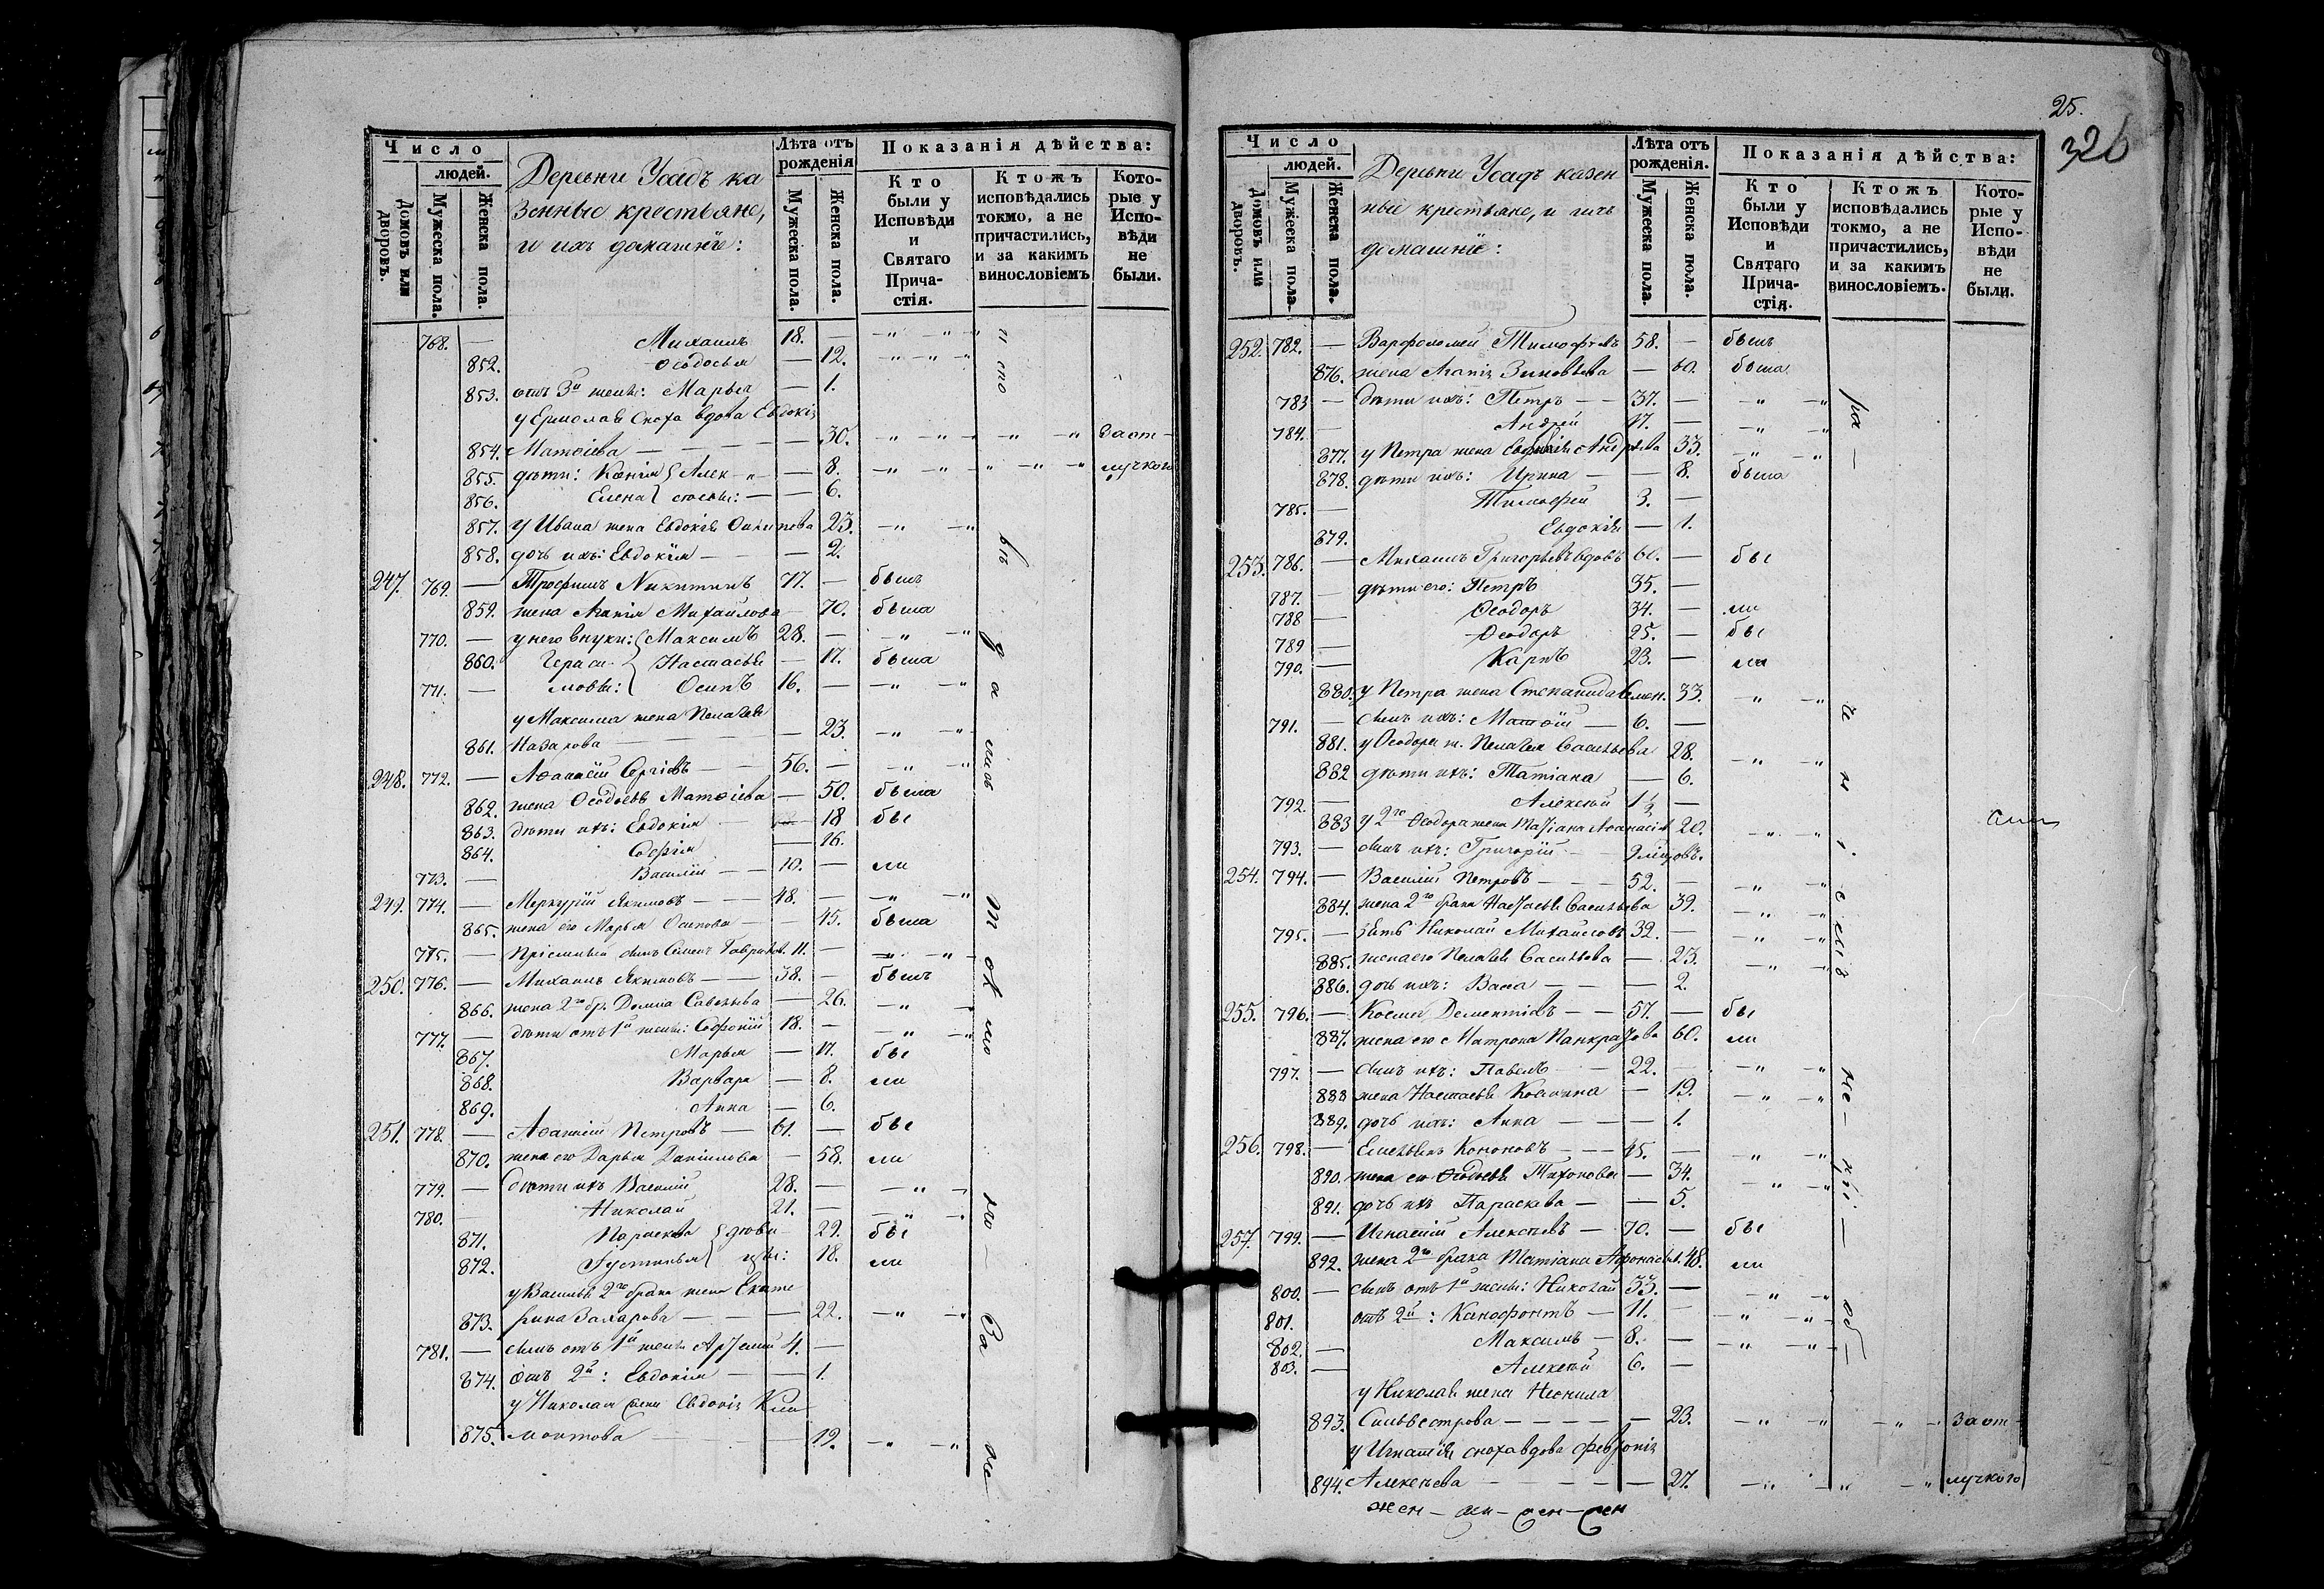 Число
людей.
Домовъ или дворовъ.
Мужеска пола.
Женска пола.
Деревни Усадъ ка
зенные крестьяне,
и ихъ домашніе:
Лѣта отъ рожденія
Мужеска пола.
Женска пола.
Показанія дѣйства:
Кто были у Исповѣди и Святаго Причастія.
Ктожъ исповѣдались токмо, а не причастились, и за какимъ винословіемъ
Которые у Исповѣди не были.
768. — Михаилъ 18. — -"- -"-
852. Ѳеодосья — 12. -"- -"-
853. отъ 3й жены: Марья — 1.
у Ермолая сноха вдова Евдокія
854. Матвіева — 30. -"- -"- -"- за от-
855. дѣти: Ксенія Алек- — 8. -"- -"- -"- лучкою
856. Елена сѣевы: — 6.
857. у Ивана жена Евдокія 23. -"-
858. дочь ихъ: Евдокія — 2.
247. 769. — Трофимъ Никитинъ 77. — былъ
859. жена Агапія Михайлова — 70. была
770. — у него внуки: Максимъ 28. — -"-
860. Гераси- Настасья — 17. была
771. — мовы: Осипъ 16. — -"-
у Максима жена Пелагея
861. Назарова — 23. -"-
248. 772. — Аѳанасій Сергіевъ 56. — -"-
862. жена Ѳеодосья Матвіева — 50. была
863. дѣти ихъ: Евдокія — 18 бы
864. Софія — 16.
773. — Василій 10. — ли
249. 774. — Меркурій Якимовъ 48. — -"-
865. жена его Марья Осипова — 45. была
775. — Пріемный сынъ Семенъ Гаврилов. 11. — -"-
250. 776. — Михаилъ Якимовъ 38. — былъ
866. жена 2го бр. Домна Савельева — 26. -"-
777. — дѣти отъ 1й жены: Софроній 18. — -"-
867. Марья — 17. бы
868. Варвара — 8. ли
869. Анна — 6.
251. 778. — Аѳанасій Петровъ 61. — бы
870. жена его Дарья Даніилова — 58. ли
779. — дѣти ихъ Василій 28. — -"-
780. — Николай 21. — -"-
871. Параскева дѣви- 29. бы
872. Іустинья цы: 18. ли
у Василья 2го брака жена Екате
873. рина Захарова — 22. -"-
781. — сынъ отъ 1й жены Артемій 4. —
874. отъ 2й: Евдокія — 1.
у Николая жена Евдокія Кли
875. монтова — 19. -"-
25.
326
Число
людей.
Домовъ или дворовъ.
Мужеска пола.
Женска пола.
Деревни Усадъ казен
ные крестьяне, и ихъ
домашніе:
Лѣта отъ рожденія.
Мужеска пола.
Женска пола.
Показанія дѣйства:
Кто были у Исповѣди и Святаго Причастія.
Ктожъ исповѣдались токмо, а не причастились, и за какимъ винословіемъ.
Которые у Исповѣди не были.
252. 782. — Варфоломей Тимофѣевъ 58. — былъ
876. жена Агапія Зиновьева — 60. была
783 — дѣти ихъ: Петръ 37. — -"-
784. — Андрей 17. — -"-
877. у Петра жена Евфимія Андрѣева 33. -"-
878. дѣти ихъ: Ирина — 8. была
785. — Тимофей 3. —
879. Евдокія — 1.
253. 786. — Михаилъ Григорьевъ вдовъ 60. — бы
787. — дѣти его: Петръ 35. —
788 — Ѳеодоръ 34. — ли
789 — Ѳеодоръ 25. — бы
790. — Карпъ 23. — ли
880. у Петра жена Степанида Семен. 33. -"-
791. — сынъ ихъ: Матвій 6. —
881. у Ѳеодора ж. Пелагея Васильева 28. -"-
882 дѣти ихъ: Татіана — 6.
792. — Алексѣй 1½ —
883 у 2го Ѳеодора жена Татіана Аѳанасіев 20. -"-
793. — сынъ ихъ: Григорій 9 місяцовъ.
254. 794. — Василій Петровъ 52. — -"-
884. жена 2го брака Настасья Васильева 39. -"-
795. — зять Николай Михайловъ 32. — -"-
885. жена его Пелагея Васильева — 23. -"-
886. дочь ихъ: Васса — 2.
255. 796. — Косма Дементіевъ 57. — бы
887. жена его Матрона Панкратова 60. ли
797. — сынъ ихъ: Павелъ 22. — -"-
888 жена Настасья Космина — 19. -"-
889. дочь ихъ: Анна — 1.
256. 798. — Емельянъ Кононовъ 45. — -"-
890. жена его Ѳеодосья Тихонова — 34. -"-
891. дочь ихъ Параскева — 5.
257. 799. — Игнатій Алексѣевъ 70. — бы
892. жена 2го брака Татіана Афонасьев. 48. ли
800. — сынъ отъ 1й жены: Николай 33. — -"-
801. отъ 2й: Ксенофонтъ 11. — -"-
802. — Максимъ 8. — -"-
803. — Алексѣй 6. —
у Николая жена Неонила
893. Сильвестрова — 23. -"- -"- за от-
у Игнатія сноха вдова Февронія
894. Алексѣева — 27. -"- -"- лучкою